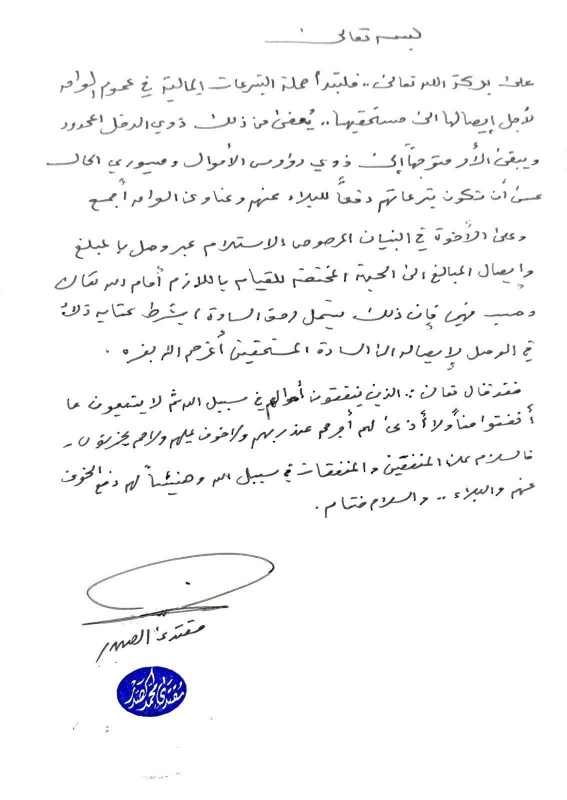 بسمه تعالى
على بركة الله تعالى .. فلتبدأ حملة التبرعات المالية في عموم العراق
لأجل إيصالها الى مستحقيها .. يُعفى من ذلك ذوي الدخل المحدود
ويبقى الأمر متوجهاً إلى ذوي رؤوس الأموال وميسوري الحال
عسى أن تكون تبرعاتهم دفعاً للبلاء عنهم وعنا وعن العراق أجمع
وعلى الأخوة في البنيان المرصوص الاستلام عبر وصل بالمبلغ
وإيصال المبالغ الى الجهة المختصة للقيام باللازم أمام الله تعالى
وحسب فهمي فإن ذلك يشمل (حق السادة) بشرط كتابة ذلك
في الوصل لإيصاله الى السادة المستحقين أعزهم الله بعزه .
فقد قال تعالى : الذين ينفقون أموالهم في سبيل الله ثم لا يتبعون ما
أنفقوا مناً ولا أذىً لهم أجرهم عند ربهم ولا خوف عليهم ولا هم يحزنون -
فالسلام على المنفقين والمنفقات في سبيل الله وهنيئاً لهم دفع الخوف
عنهم والبلاء .. والسلام ختام .
مقتدى الصدر
مقتدى محمد الصدر